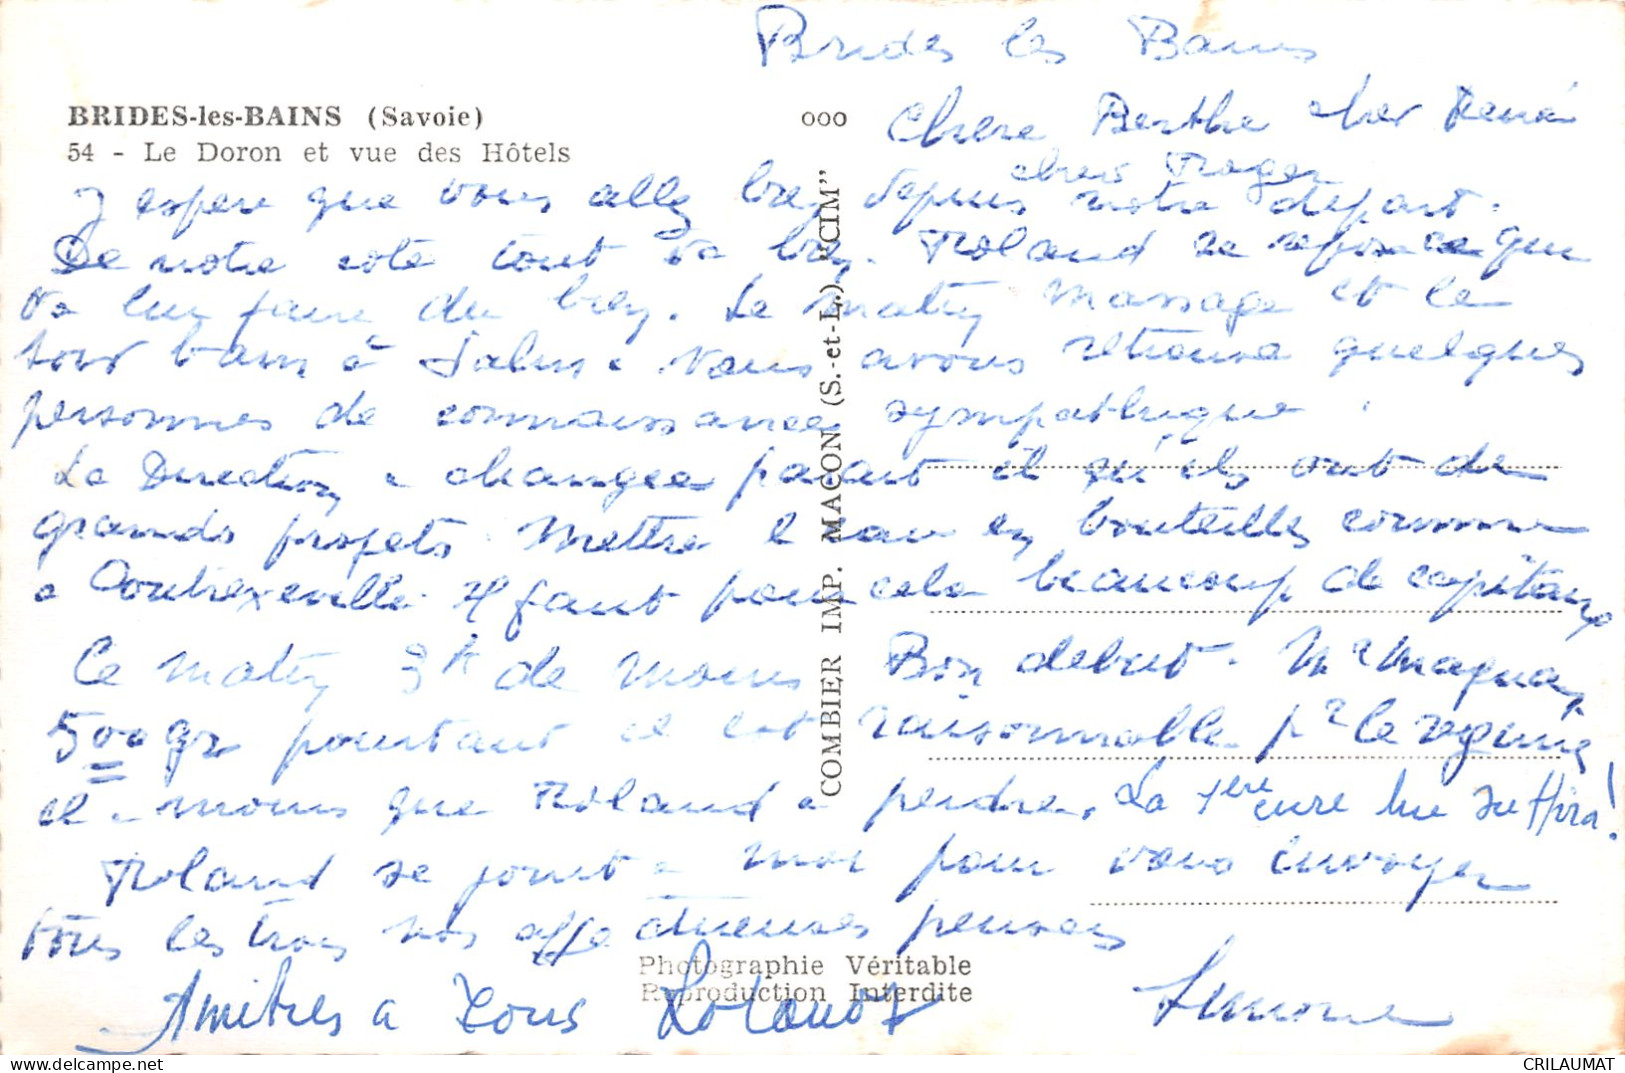 Brides les Bains
BRIDES-les-BAINS (Savoie)
54 - Le Doron et vue des Hôtels
ooo
Chere Berthe cher René
cher Roger
J espere que vous allez bien depuis notre depart.
De notre cote tout va bien. Roland se repose ce que
va lui faire du bien. Le matin massage et le
soir bain à Salins. Nous avons retrouvé quelques
personnes de connaissance sympathique.
La Direction a changee parait il qu'ils ont de
grands projets. Mettre l eau en bouteilles comme
a Contrexeville. Il faut pour cela beaucoup de capitaux
Ce matin de moins Bon debut. Mr
500 gr pourtant il est raisonnable pr le regime
il a moins que Roland a perdre. La 1ere cure lui suffira!
Roland se joint a moi pour vous envoyer
tous les trois nos affectueuses pensees
Simone
Amitiés a Tous Roland
COMBIER IMP. MACON (S.-et-L.) "CIM"
Photographie Véritable
Reproduction Interdite
CRILAUMAT